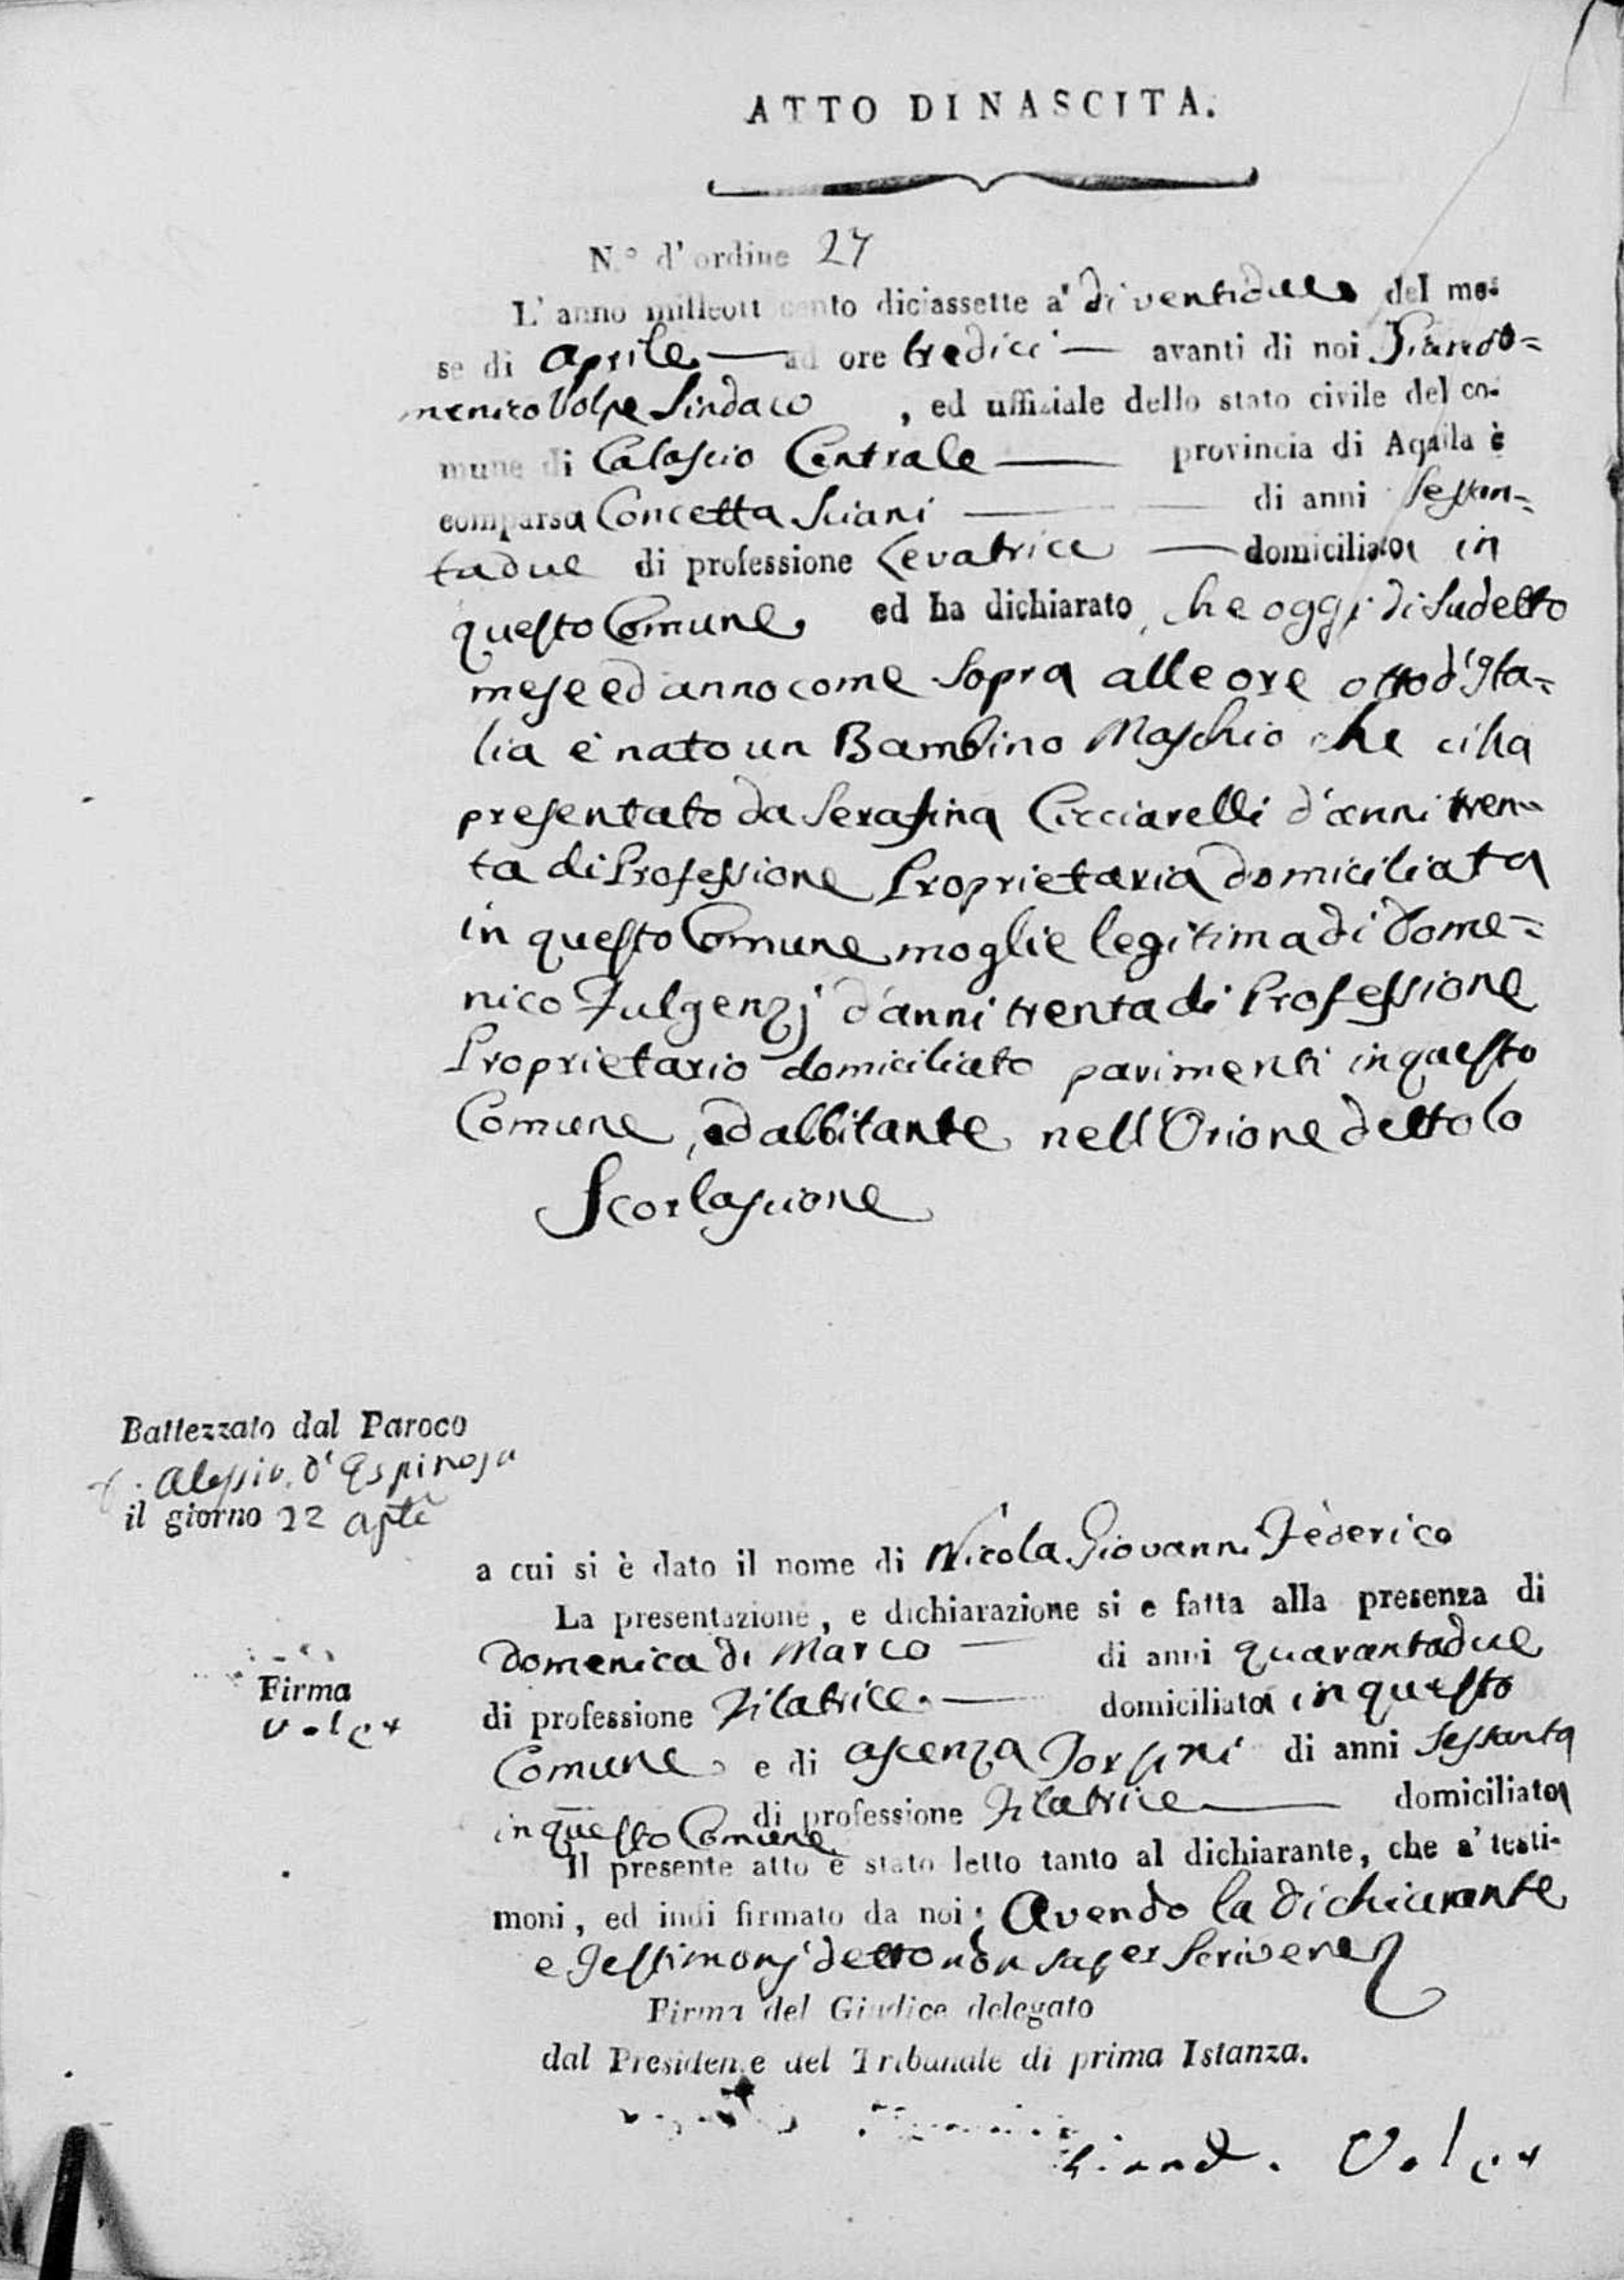 ATTO DI NASCITA.
N.° d'ordine 27
L'anno milleott cento diciassette a' dì ventidue del me-
se di Aprile — ad ore tredici — avanti di noi Giando=
menico Volpe Sindaco , ed uffiziale dello stato civile del co-
mune di Calascio Centrale — provincia di Aquila è
comparsa Concetta Sciani — di anni sessan=
tadue di professione Levatrice — domiciliata in
questo Comune ed ha dichiarato, che oggi dì sudetto
mese ed anno come sopra alle ore otto d'Ita=
lia è nato un Bambino Maschio che ci ha
presentato da Serafina Cicciarelli d'anni tren=
ta di Professione Proprietaria domiciliata
in questo Comune moglie legitima di Dome=
nico Fulgenzj d'anni trenta di Professione
Proprietario domiciliato parimenti in questo
Comune, ed abbitante nell'Orione detto lo
Scorlascione
Battezzato dal Paroco
Alessio d'Espinosa
il giorno 22 aple
a cui si è dato il nome di Nicola Giovanni Federico
La presentazione, e dichiarazione si e fatta alla presenza di
Domenica di Marco — di anni quarantadue
di professione Filatrice — domiciliata in questo
Firma
Volpe
Comune e di Ascenza Torsini di anni sessanta
in questo Comune di professione Filatrice — domiciliata
Il presente atto è stato letto tanto al dichiarante, che a' testi-
moni, ed indi firmato da noi; Avendo la dichiarante
e Testimonj detto non saper scrivere
Firma del Giudice delegato
dal Presidente del Tribunale di prima Istanza.
Giand. Volpe